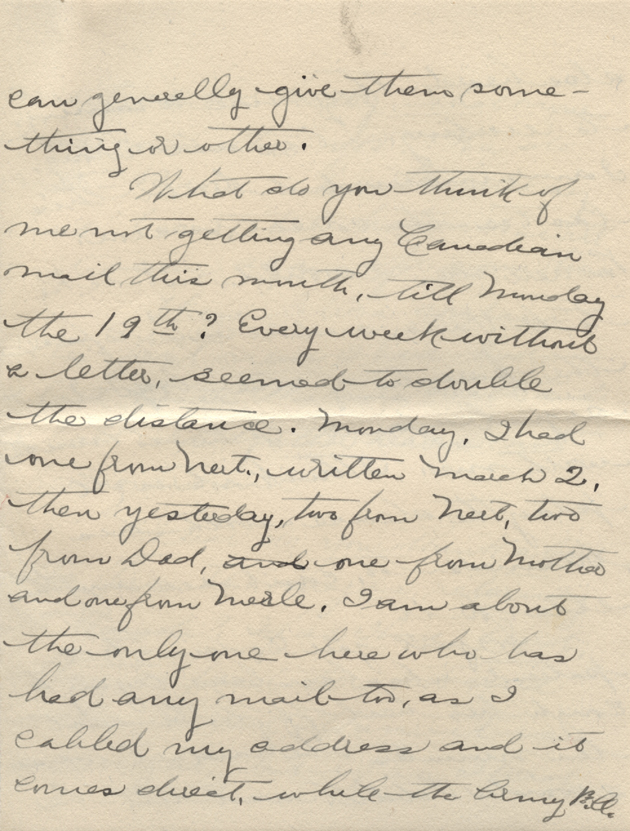 can generally give them some-
thing or other.
What do you think of
me not getting any Canadian
mail this month, till Monday
the 19th? Every week without
a letter, seemed to double
the distance. Monday, I had
one from Nert., written March 2,
then yesteday, two from Nert, two
from Dad, and one from Mother
and one from Merle. I am about
the only one here who has
had any mail too, as I
cabled my address and it
comes direct, while the Army P.O.